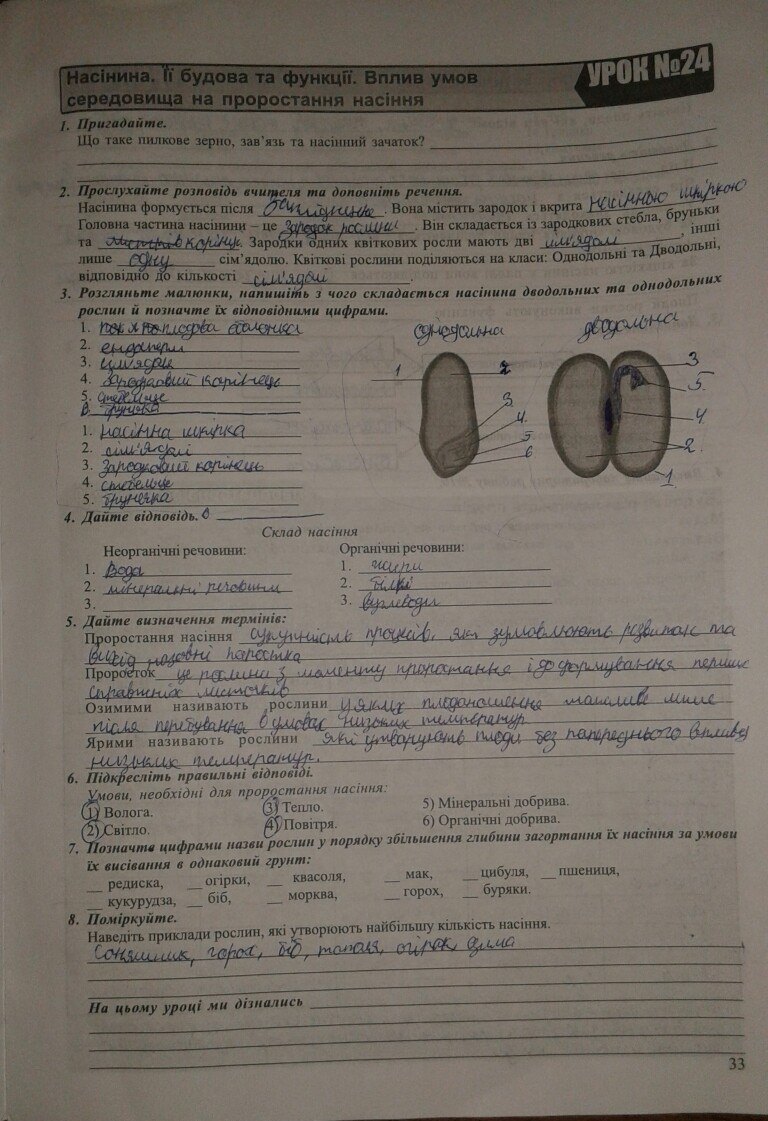 Насінина. Її будова та функції. Вплив умов
середовища на проростання насіння
УРОК №24
1. Пригадайте.
Що таке пилкове зерно, зав’язь та насінний зачаток?
2. Прослухайте розповідь вчителя та доповніть речення.
Насінина формується після запліднення. Вона містить зародок і вкрита насінною шкіркою
Головна частина насінини – це зародок рослини. Він складається із зародкових стебла, бруньки
та корінця. Зародки одних квіткових росли мають дві сім'ядолі, інші
лише одну сім’ядолю. Квіткові рослини поділяються на класи: Однодольні та Дводольні,
відповідно до кількості сім'ядолі.
3. Розгляньте малюнки, напишіть з чого складається насінина дводольних та однодольних
рослин й позначте їх відповідними цифрами.
однодольна дводольна
1. оболонка
2. ендосперм
3. сім'ядоля
4. зародковий корінець
5. стебельце
6. брунька
1. насінна шкірка
2. сім'ядолі
3. Зародковий корінець
4. стебельце
5. брунечка
1 2 3 4 5 6
3 5 4 2 1
4. Дайте відповідь.
Склад насіння
Неорганічні речовини: Органічні речовини:
1. Вода 1. жири
2. мінеральні речовини 2. білки
3. 3. вуглеводи
5. Дайте визначення термінів:
Проростання насіння сукупність процесів, які зумовлюють розвиток та
вихід назовні паростка
Проросток це рослина з моменту проростання і до формування перших
справжніх листків
Озимими називають рослини у яких плодоношення можливе лише
після перебування в умовах низьких температур
Ярими називають рослини які утворюють плоди без попереднього впливу
низьких температур.
6. Підкресліть правильні відповіді.
Умови, необхідні для проростання насіння:
1) Волога. 3) Тепло. 5) Мінеральні добрива.
2) Світло. 4) Повітря. 6) Органічні добрива.
7. Позначте цифрами назви рослин у порядку збільшення глибини загортання їх насіння за умови
їх висівання в однаковий грунт:
__ редиска, __ огірки, __ квасоля, __ мак, __ цибуля, __ пшениця,
__ кукурудза, __ біб, __ морква, __ горох, __ буряки.
8. Поміркуйте.
Наведіть приклади рослин, які утворюють найбільшу кількість насіння.
Соняшник, горох, біб, тополя, огірок, диня
На цьому уроці ми дізнались
33